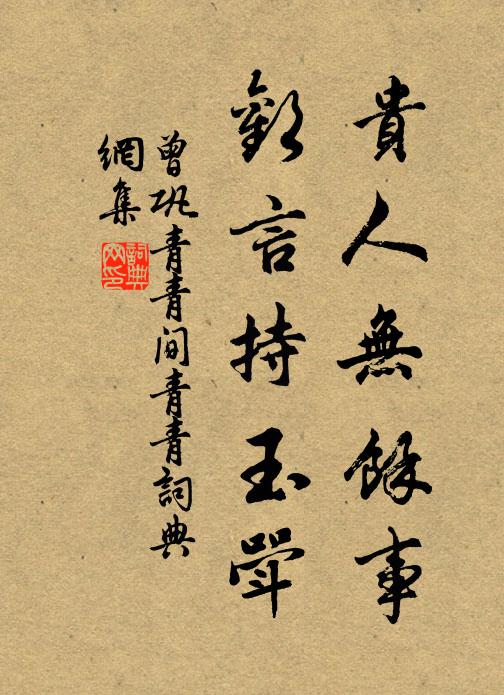 貴人無餘事
歡言持玉斝
曾巩青青间青青詞典
網集
詞典
网印